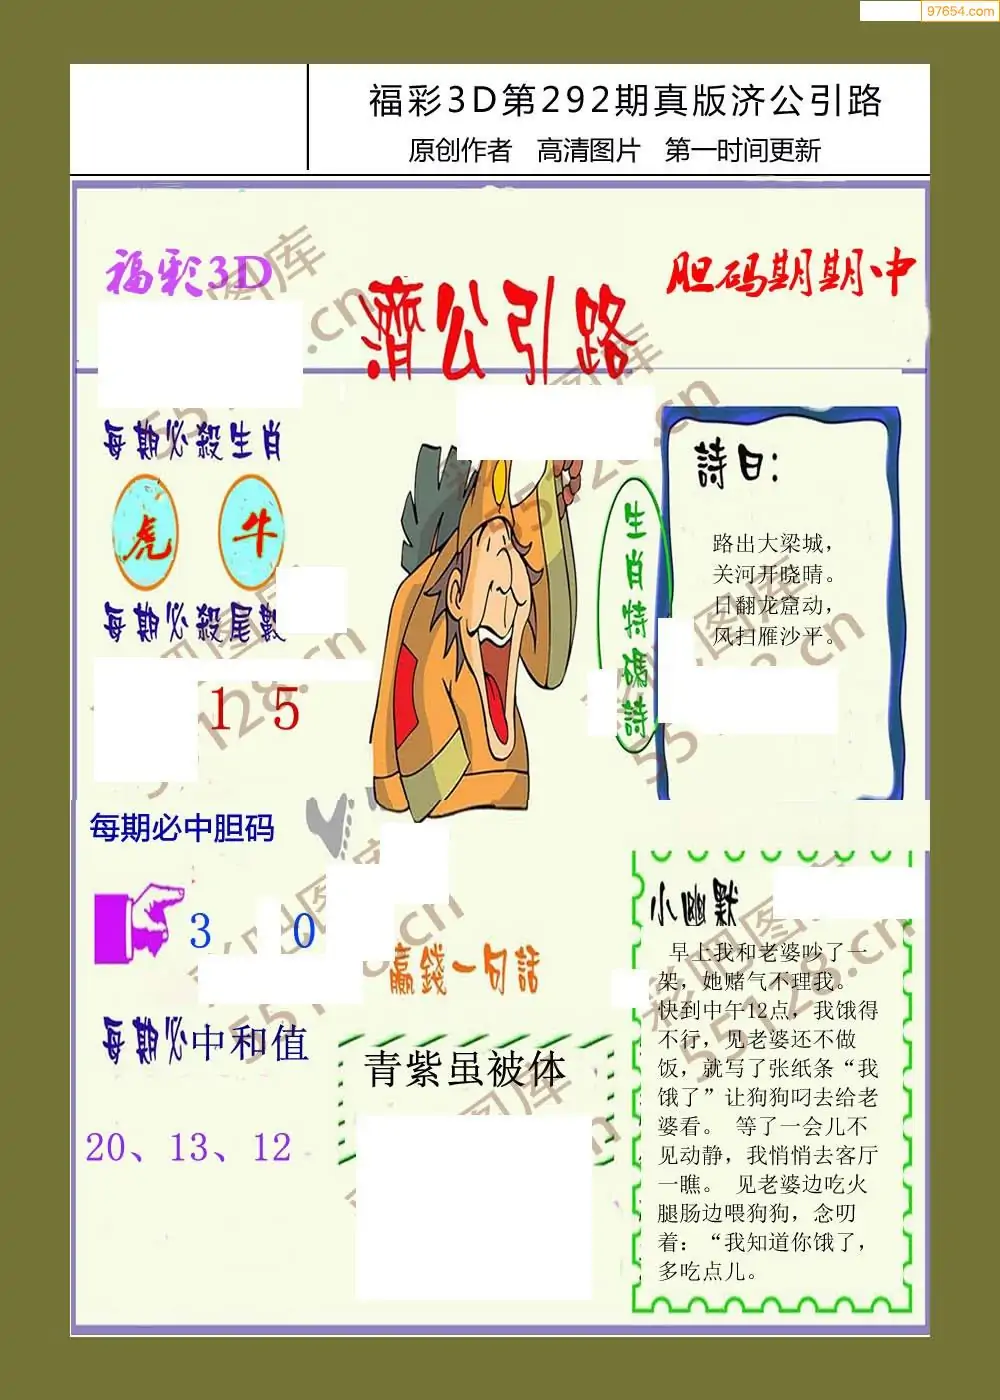 97654.com
福彩3D第292期真版济公引路
原创作者 高清图片 第一时间更新
福彩3D
濟公引路
胆码期期中
每期必殺生肖
虎 牛
每期必殺尾數
1 5
每期必中胆码
3 0
每期必中和值
20、13、12
生肖特碼詩
詩曰：
路出大梁城，
关河开晓晴。
日翻龙窟动，
风扫雁沙平。
赢錢一句話
青紫虽被体
小幽默
早上我和老婆吵了一
架，她赌气不理我。
快到中午12点，我饿得
不行，见老婆还不做
饭，就写了张纸条“我
饿了”让狗狗叼去给老
婆看。 等了一会儿不
见动静，我悄悄去客厅
一瞧。 见老婆边吃火
腿肠边喂狗狗，念叨
着：“我知道你饿了，
多吃点儿。
彩吧图库
55128.cn